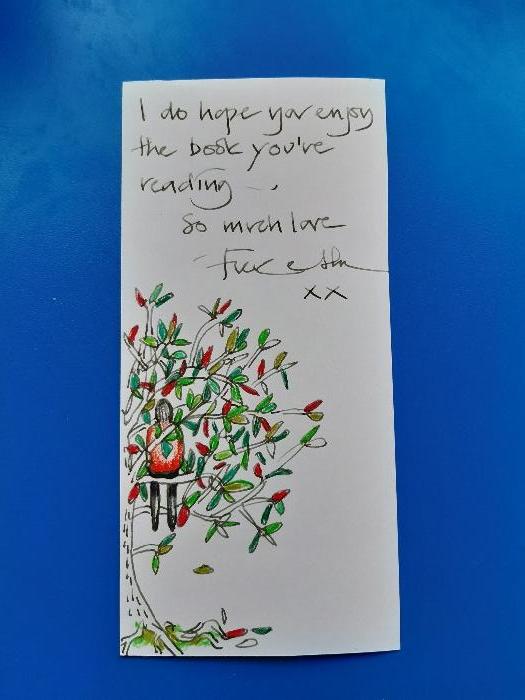 I do hope you enjoy
the book you're
reading ...
So much love
xx